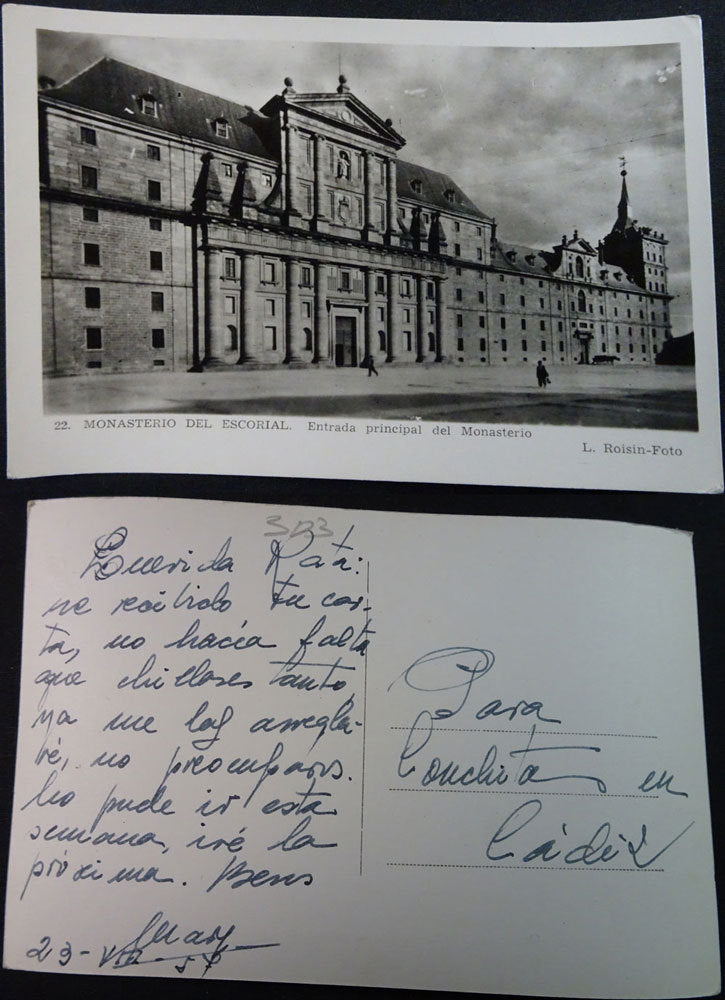 22. MONASTERIO DEL ESCORIAL. Entrada principal del Monasterio
L. Roisin-Foto
Querida Rata:
he recibido tu car-
ta, no hacía falta
que chillases tanto,
ya me las arregla-
ré, no preocuparos.
No pude ir esta
semana, iré la
próxima. Besos
Mary
23-VII-57
Para
Conchita en
Cádiz